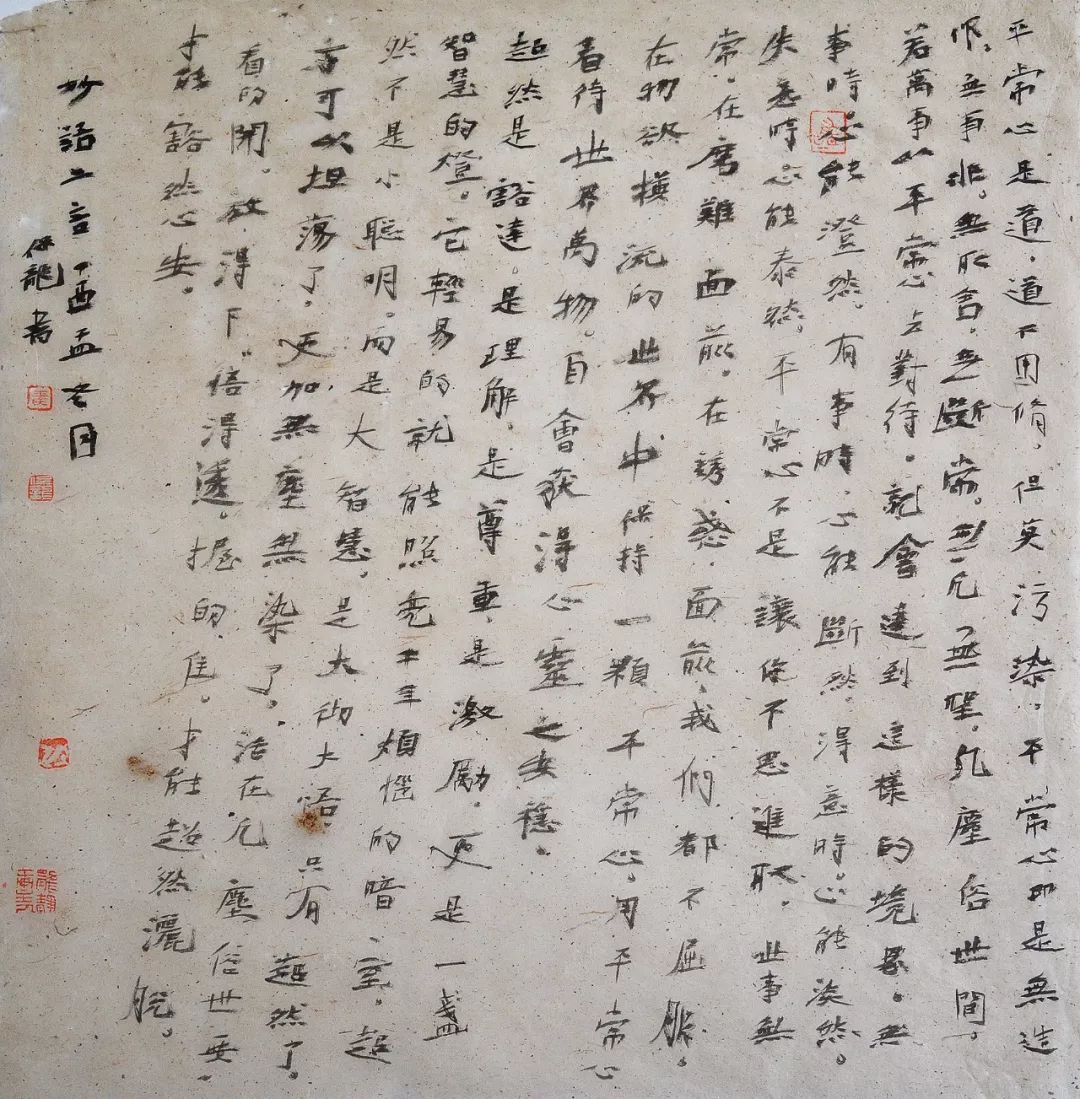 平常心是道，道不用脩，但莫污染。平常心即是無造
作，無事非，無取舍，無斷常，無凡無聖。凡塵俗世間，
若萬事以平常心去對待，就會達到這樣的境界。無
事時心能澄然，有事時心能斷然，得意時心能淡然。
失意時心能泰然。平常心不是讓你不思進取，世事無
常，在磨難面前，在誘惑面前，我們都不屈服。
在物欲橫流的世界中保持一顆平常心，用平常心
看待世界萬物，自會获得心靈之安穩。
超然是豁達，是理解，是尊重，是激勵，更是一盞
智慧的燈，它輕易的就能照亮 煩惱的暗室，超
然不是小聰明，而是大智慧，是大彻大悟，只有超然了，
方可以坦荡了，更加無塵無染了，活在凡塵俗世要，
看的開，放得下，悟得透，握的 ，才能超然灑脱。
才能豁然心安。
妙語之言丁酉孟冬月
龍書